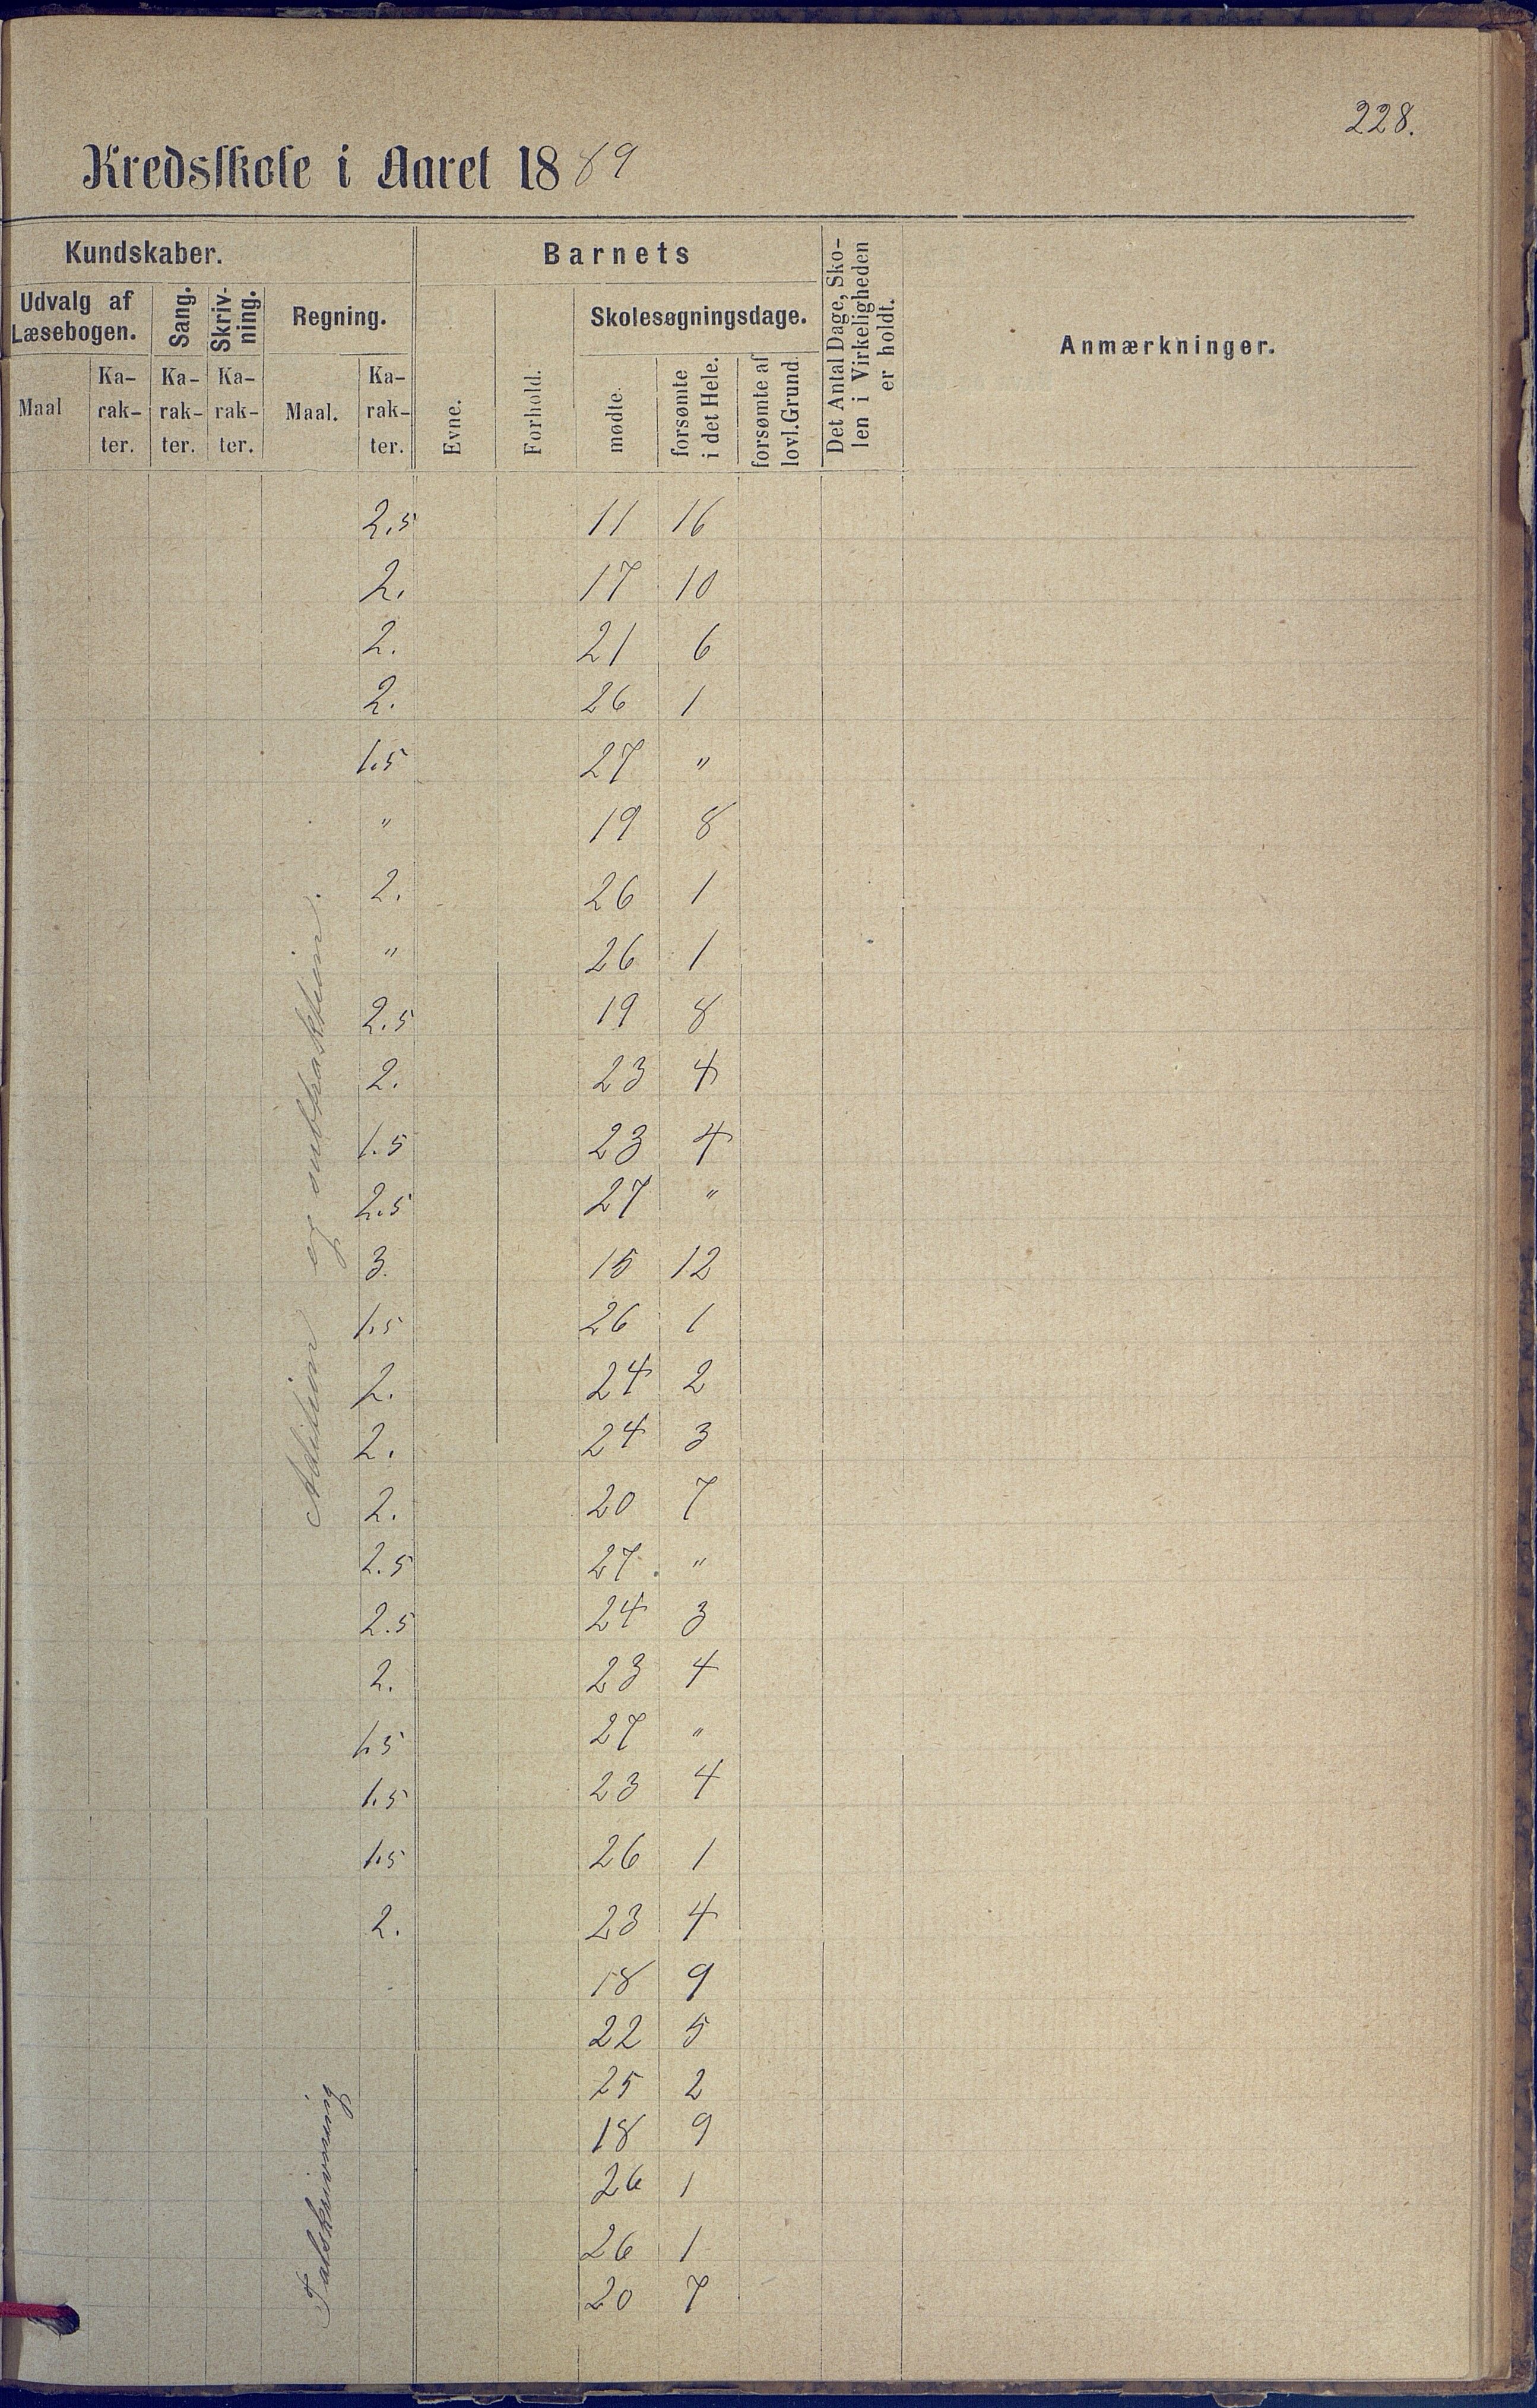 228.
Kredsskole i Aaret 1889
Kundskaber.
Barnets
Det Antal Dage, Sko-
len i Virkeligheden
er holdt.
Anmærkninger.
Udvalg af
Læsebogen.
Sang.
Skriv-
ning.
Regning.
Evne.
Forhold.
Skolesøgningsdage.
Maal
Ka-
rak-
ter.
Ka-
rak-
ter.
Ka-
rak-
ter.
Maal.
Ka-
rak-
ter.
mødte.
forsømte
i det Hele.
forsømte af
lovl. Grund.
2.5 11 16
2. 17 10
2. 21 6
2. 26 1
1.5 27 "
" 19 8
2. 26 1
" 26 1
2.5 19 8
2. 23 4
1.5 23 4
2.5 27 "
3. 15 12
1.5 26 1
2. 24 2
2. 24 3
2. 20 7
2.5 27 "
2.5 24 3
2. 23 4
1.5 27 "
1.5 23 4
1.5 26 1
2. 23 4
18 9
22 5
25 2
18 9
26 1
26 1
20 7
Addition og subtraktion.
Talskrivning